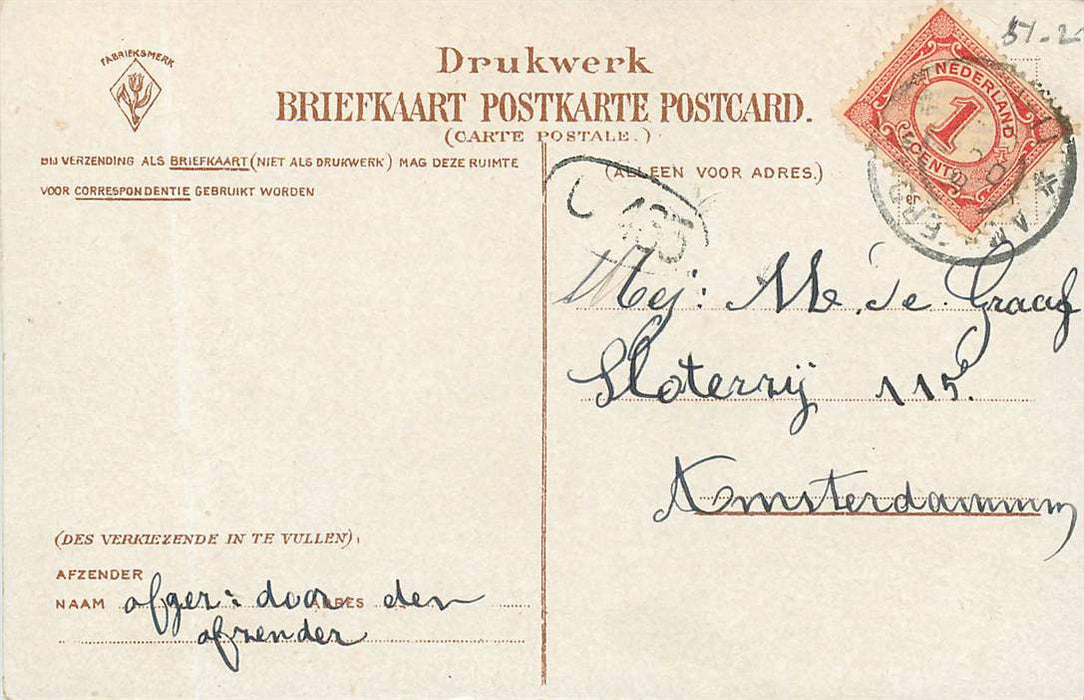 FABRIEKSMERK
Drukwerk
BRIEFKAART POSTKARTE POSTCARD.
(CARTE POSTALE.)
BIJ VERZENDING ALS BRIEFKAART (NIET ALS DRUKWERK) MAG DEZE RUIMTE
VOOR CORRESPONDENTIE GEBRUIKT WORDEN
(ALLEEN VOOR ADRES.)
NEDERLAND
1
CENT
51-2
135
Mej: M. de Graaf
Sloterzij 115.
Amsterdammmm
(DES VERKIEZENDE IN TE VULLEN):
AFZENDER
NAAM afger: door ADRES den
afzender